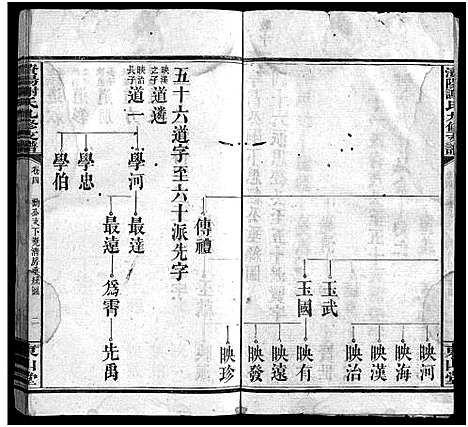 東山堂
映河
映海
映漢
映治
玉武
映有
映遠
映發
玉國
映珍
傳禮
五十六道字至六十派先字
映漢之子
道遴
映治長子
道一
學河
最達
最遠
爲霄
先禹
學忠
學伯
卷四
二
東山堂